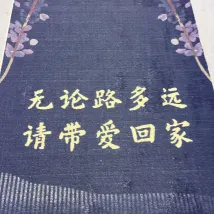 无论路多远
请带爱回家